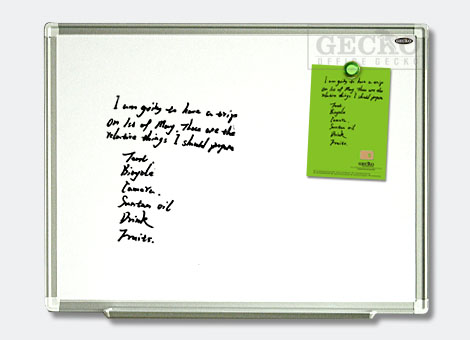 GECKO
OFFICE GECKO
I am going to have a trip
on 1st of May. These are the
relative things I should prepare
Tent
Bicycle
Camera.
Suntan oil
Drink
Fruits.
I am going to have a trip
on 1st of May. These are the
relative things I should prepare
Tent
Bicycle
Camera
Suntan oil
Drink
Fruits.
gecko